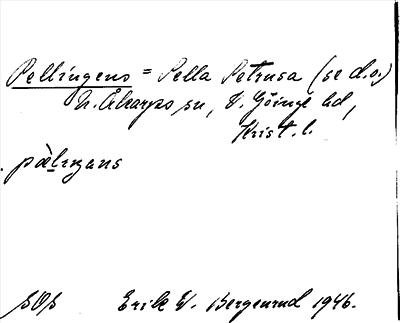 Pellingens = Pella Petrusa (se d.o.)
N. Åkarps sn, V. Göinge hd,
Krist. l.
pàlingans
SOS Erik W. Bergenrud 1946.